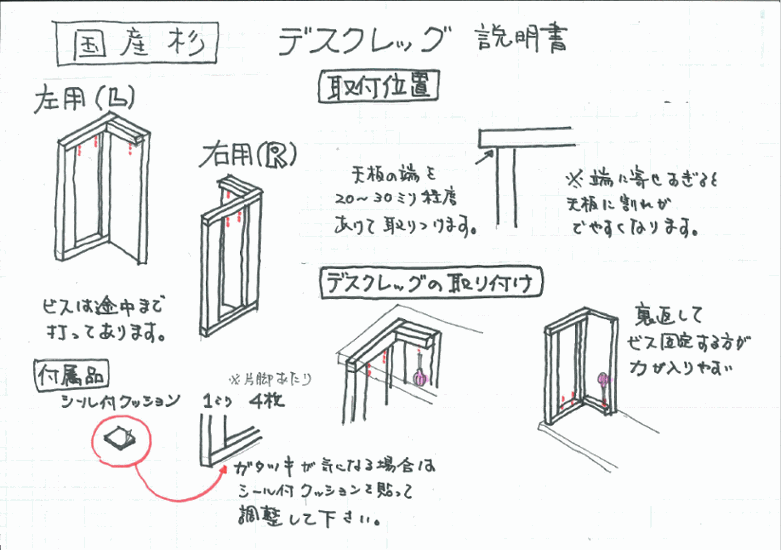 国産杉
デスクレッグ 説明書
左用(L)
右用(R)
ビスは途中まで
打ってあります。
取付位置
天板の端を
20〜30ミリ程度
あけて取りつけます。
※端に寄せすぎると
天板に割れが
でやすくなります。
デスクレッグの取り付け
裏返して
ビス固定する方が
力が入りやすい
付属品
シール付クッション 1ミリ 4枚
※片脚あたり
ガタツキが気になる場合は
シール付クッションを貼って
調整して下さい。